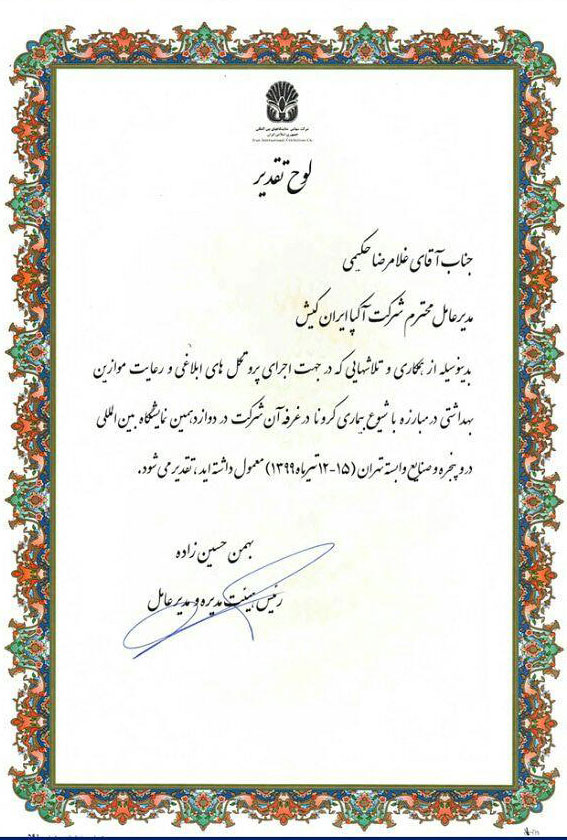 شرکت سهامی نمایشگاههای بین المللی
جمهوری اسلامی ایران
Iran International Exhibitions Co.
لوح تقدیر
جناب آقای غلامرضا حکیمی
مدیرعامل محترم شرکت آکپا ایران کیش
بدینوسیله از همکاری و تلاشهایی که در جهت اجرای پروتکل های ابلاغی و رعایت موازین
بهداشتی در مبارزه با شیوع بیماری کرونا در غرفه آن شرکت در دوازدهمین نمایشگاه بین المللی
در و پنجره و صنایع وابسته تهران (۱۵-۱۲ تیرماه ۱۳۹۹) معمول داشته اید، تقدیر می شود.
بهمن حسین زاده
رئیس هیئت مدیره و مدیرعامل